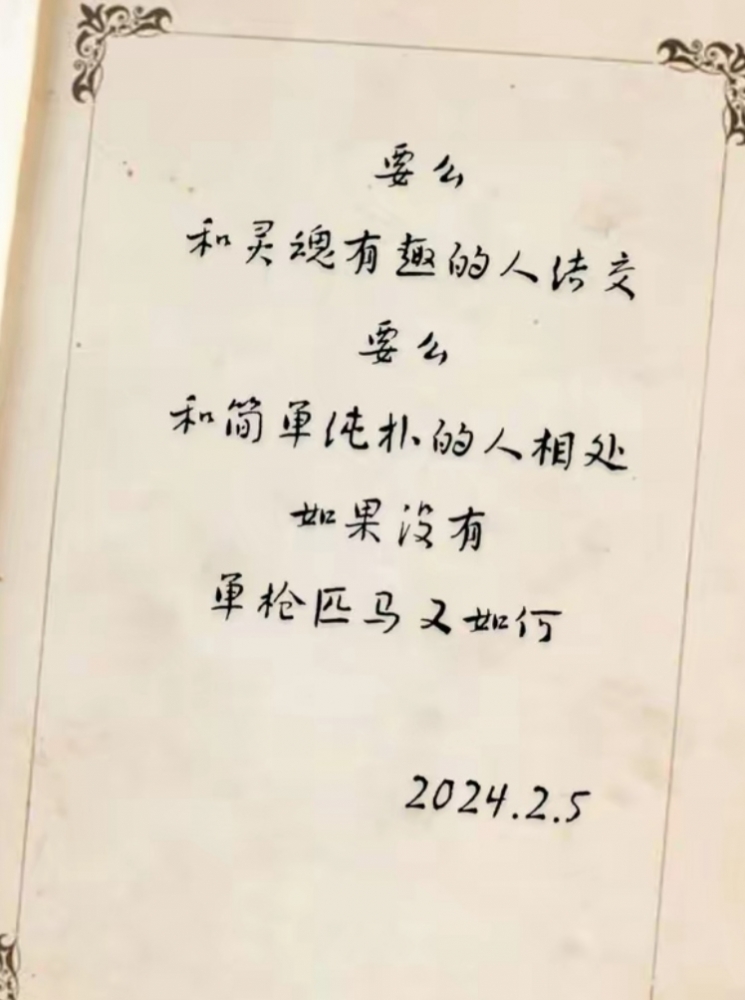 要么
和灵魂有趣的人结交
要么
和简单纯朴的人相处
如果没有
单枪匹马又如何
2024.2.5